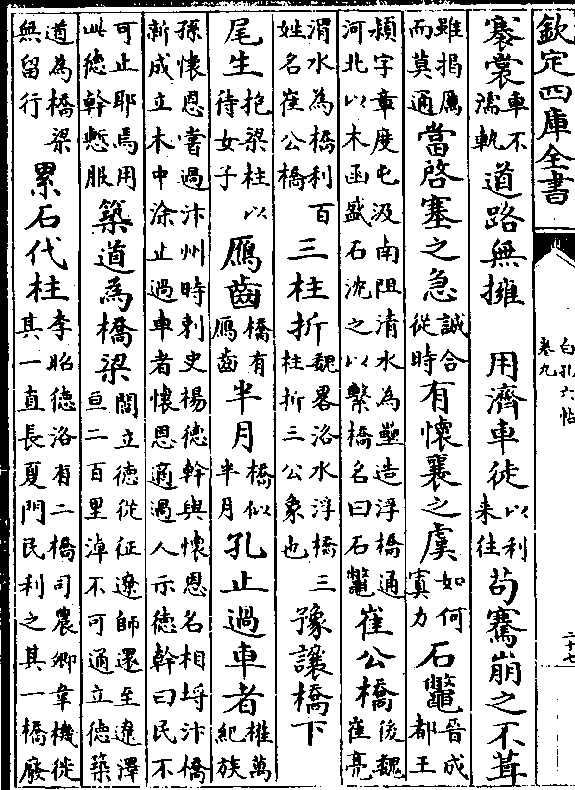 欽定四庫全書
白孔六帖
卷九
二十七
褰裳車不濡軌道路無擁 用濟車徒以利来往苟騫崩之不葺
雖揭厲而莫通當啓塞之急誠合從時有懷襄之虞如何寘力石鼈晉成都王
頴字章度屯汲南阻清水為壍造浮橋通河北以木函盛石沈之以繫橋名曰石鼈崔公橋後魏崔亮
渭水為橋利百姓名崔公橋三柱折魏畧洛水浮橋三柱折三公象也豫讓橋下
尾生抱梁柱以待女子鴈齒橋有鴈齒半月橋似半月孔止過車者權萬紀族
孫懷恩嘗過汴州時刺史楊德幹與懷恩名相埒汴橋新成立木中涂止過車者懷恩適過人示德幹曰民不
可止耶焉用此德幹慙服築道為橋梁閻立德從征遼師還至遼澤亘二百里淖不可通立德築
道為橋梁無留行累石代柱李昭德洛有二橋司農卿韋機徙其一直長夏門民利之其一橋廢